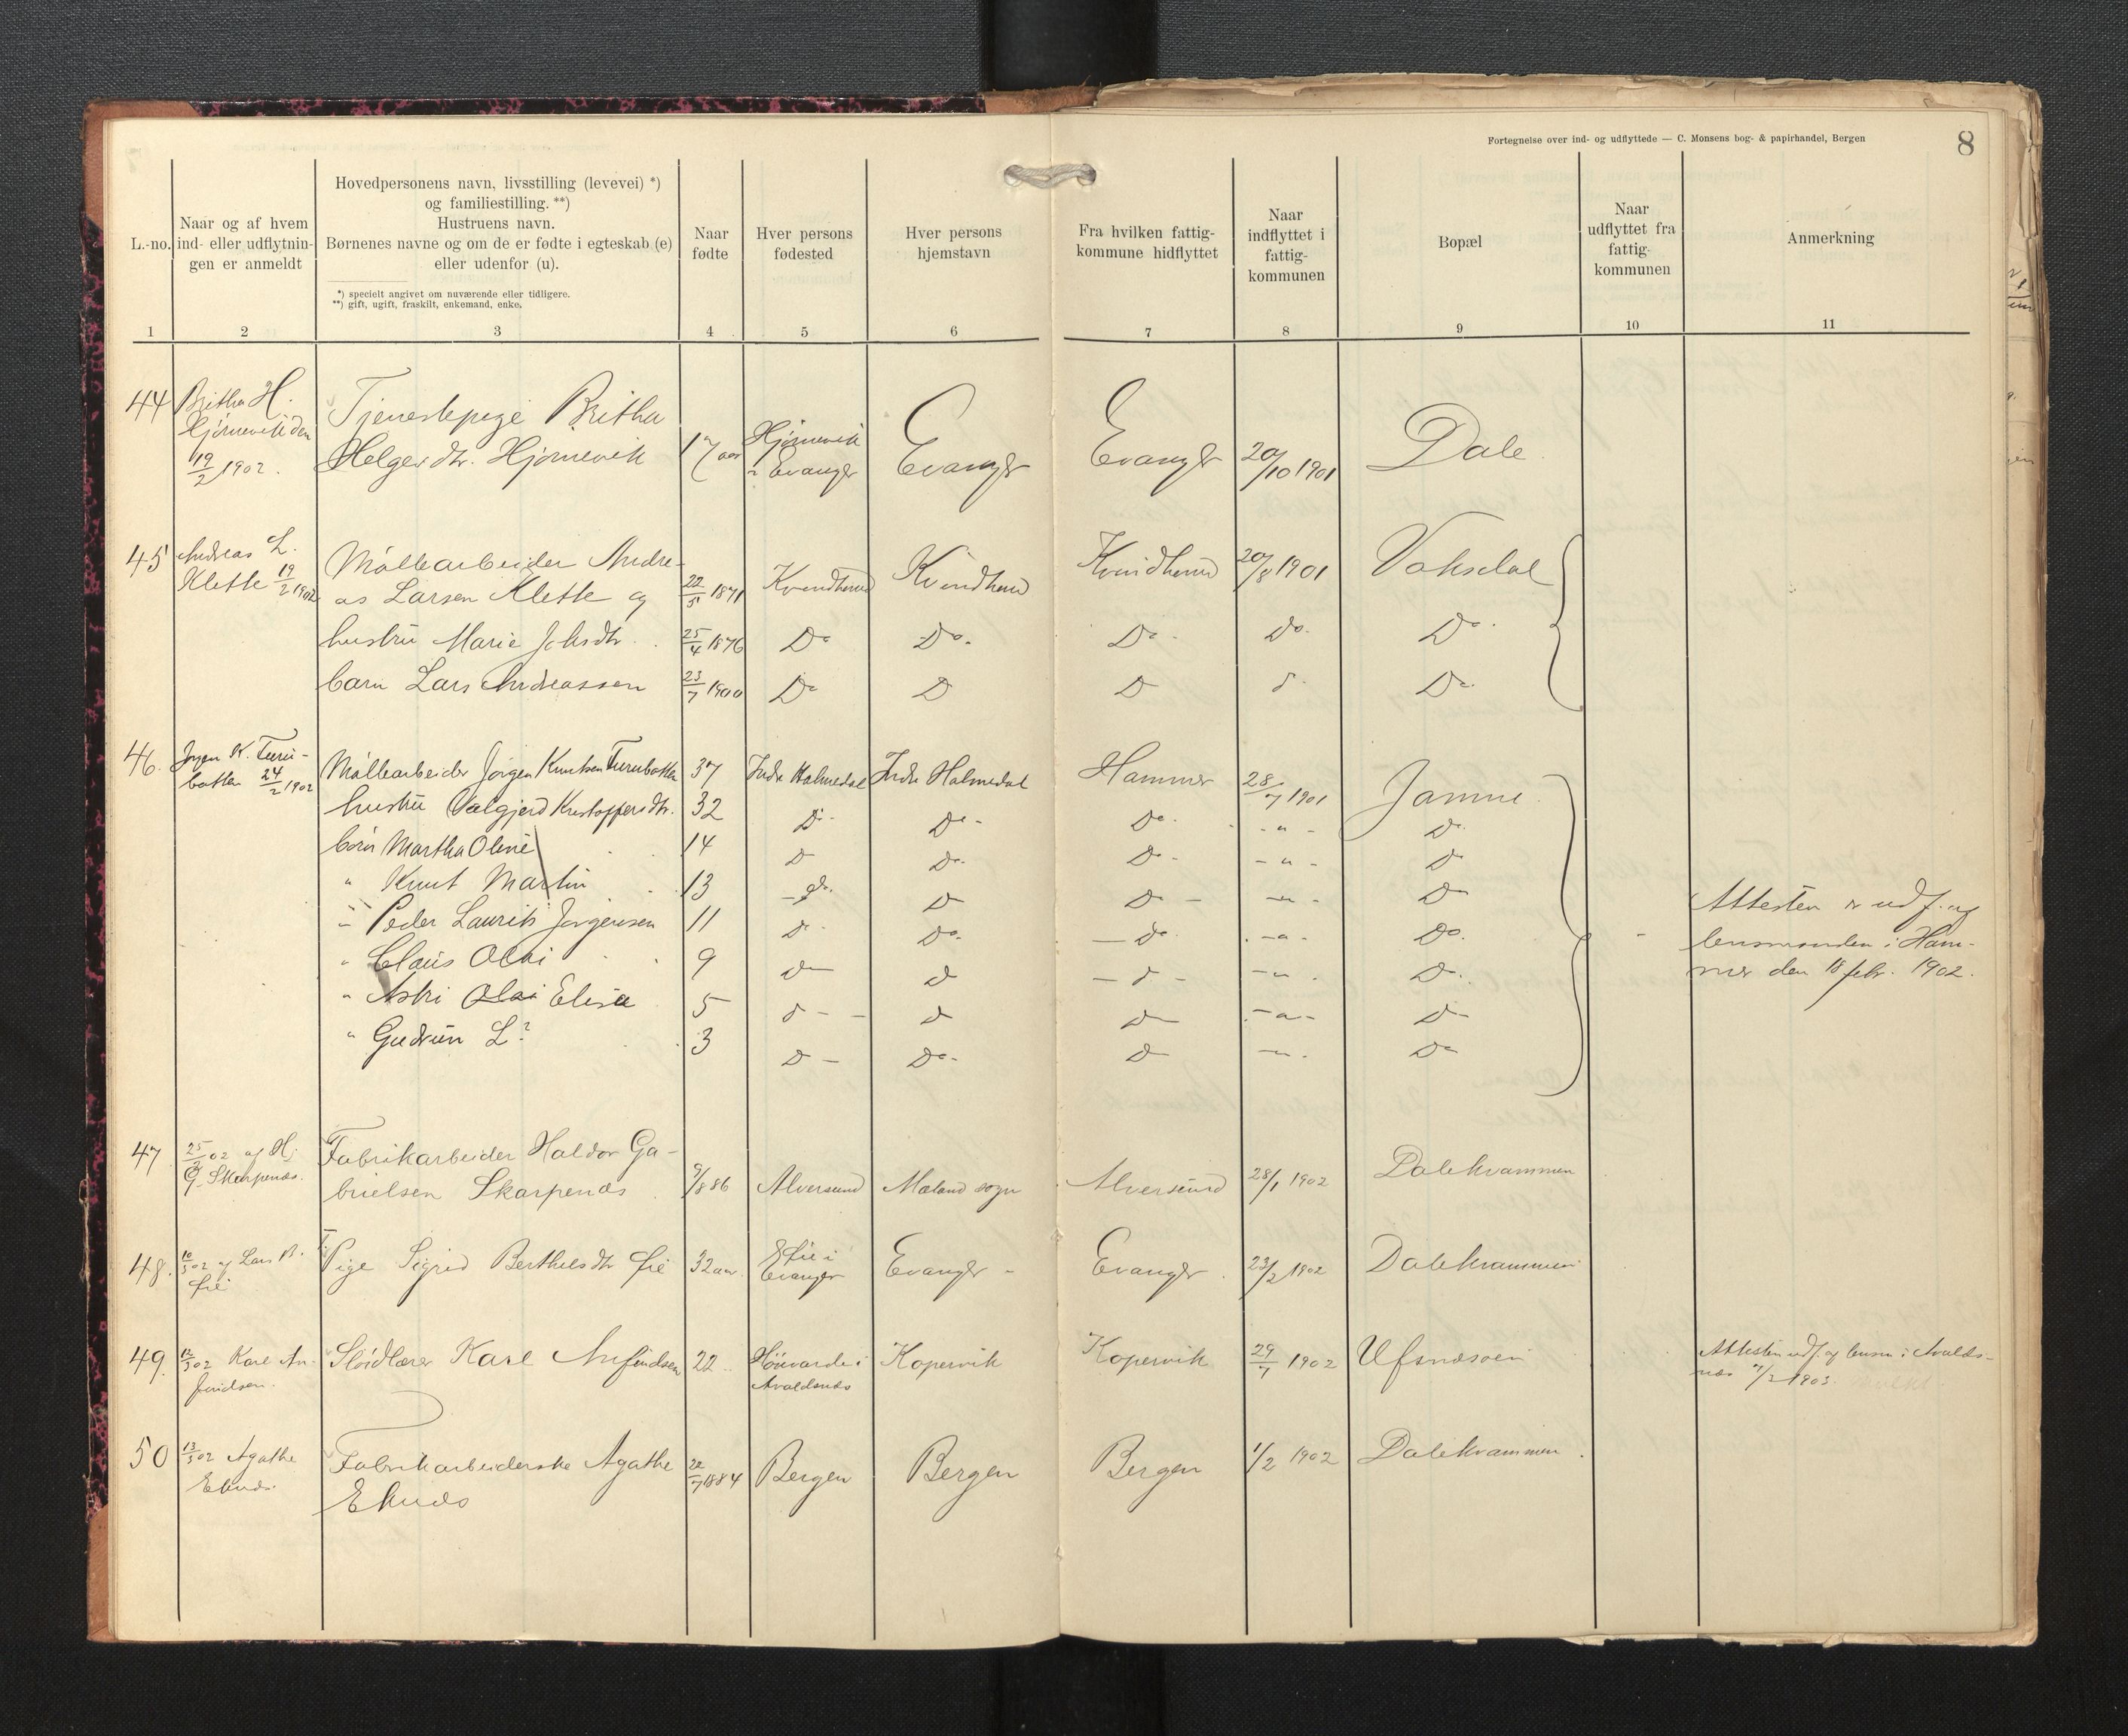 Fortegnelse over ind- og udflyttede — C. Monsens bog- & papirhandel, Bergen
8
L.-no.
Naar og af hvem
ind- eller udflytnin-
gen er anmeldt
Hovedpersonens navn, livsstilling (levevei) *)
og familiestilling. **)
Hustruens navn.
Børnenes navne og om de er fødte i egteskab (e)
eller udenfor (u).
*) specielt angivet om nuværende eller tidligere.
**) gift, ugift, fraskilt, enkemand, enke.
Naar
fødte
Hver persons
fødested
Hver persons
hjemstavn
Fra hvilken fattig-
kommune hidflyttet
Naar
indflyttet i
fattig-
kommunen
Bopæl
Naar
udflyttet fra
fattig-
kommunen
Anmerkning
1 2 3 4 5 6 7 8 9 10 11
44 Britha H.
Hjörnevik den
19/2 1902.
Tjenestepige Britha
Helgesdtr. Hjörnevik
17 aar
Hjörnevik
i Evanger
Evanger
Evanger
20/10 1901
Dale
45 Andreas L.
Klette 19/2 1902
Möllearbeider Andre-
as Larsen Klette og 22/5 1871 Kvindherred Kvindherred Kvindherred 20/8 1901 Vaksdal
hustru Marie Johsdtr. 25/4 1876 Do Do. Do. Do. Do.
barn Lars Andreassen 23/7 1900 Do D D d. Do.
46. Jörgen K. Turu-
botten 24/2 1902
Möllearbeider Jörgen Knutsen Turubotten 37 Indre Holmedal Indre Holmedal Hammer 28/7 1901 Jamne
hustru Valgjerd Kristoffersdtr. 32 Do. Do. Do. - " - Do.
börn Martha Oline 14 D Do. Do. - " - Do
" Knut Martin 13 - do. D D - - " - Do
" Peder Laurits Jörgensen 11 D. Do. - Do. - " - Do.
" Claus Olai 9 D d - d - - " - D.
" Astri Olai Elisa 5 d - - d D - " - D
" Gudrun L? 3 D - Do. D - " - Do
Attesten er udf. af
lensmanden i Ham-
mer den 18 febr. 1902.
47 25/2 02 af H.
G. Skarpenæs.
Fabrikarbeider Haldor Ga-
brielsen Skarpenæs 9/8 86 Alversund Mæland sogn Alversund 28/1 1902 Dalekvammen
48. 10/3 02 af Lars B.
Fie
Pige Sigrid Berthelsdtr Fie 32 aar
Fie i
Evanger
Evanger
Evanger
23/2 1902
Dalekvammen
49. 12/3 02 Karl An-
findsen.
Slöidlærer Karl Anfindsen 22
Hövarde i
Avaldsnæs
Kopervik
Kopervik
29/7 1902
Ufsnæsöen
Attesten udf. af lensm. i Avalds-
næs 7/2 1903.
50 13/3 02 Agathe
Eknæs.
Fabrikarbeiderske Agathe
Eknæs
22/7 1884
Bergen
Bergen
Bergen
1/2 1902
Dalekvammen.